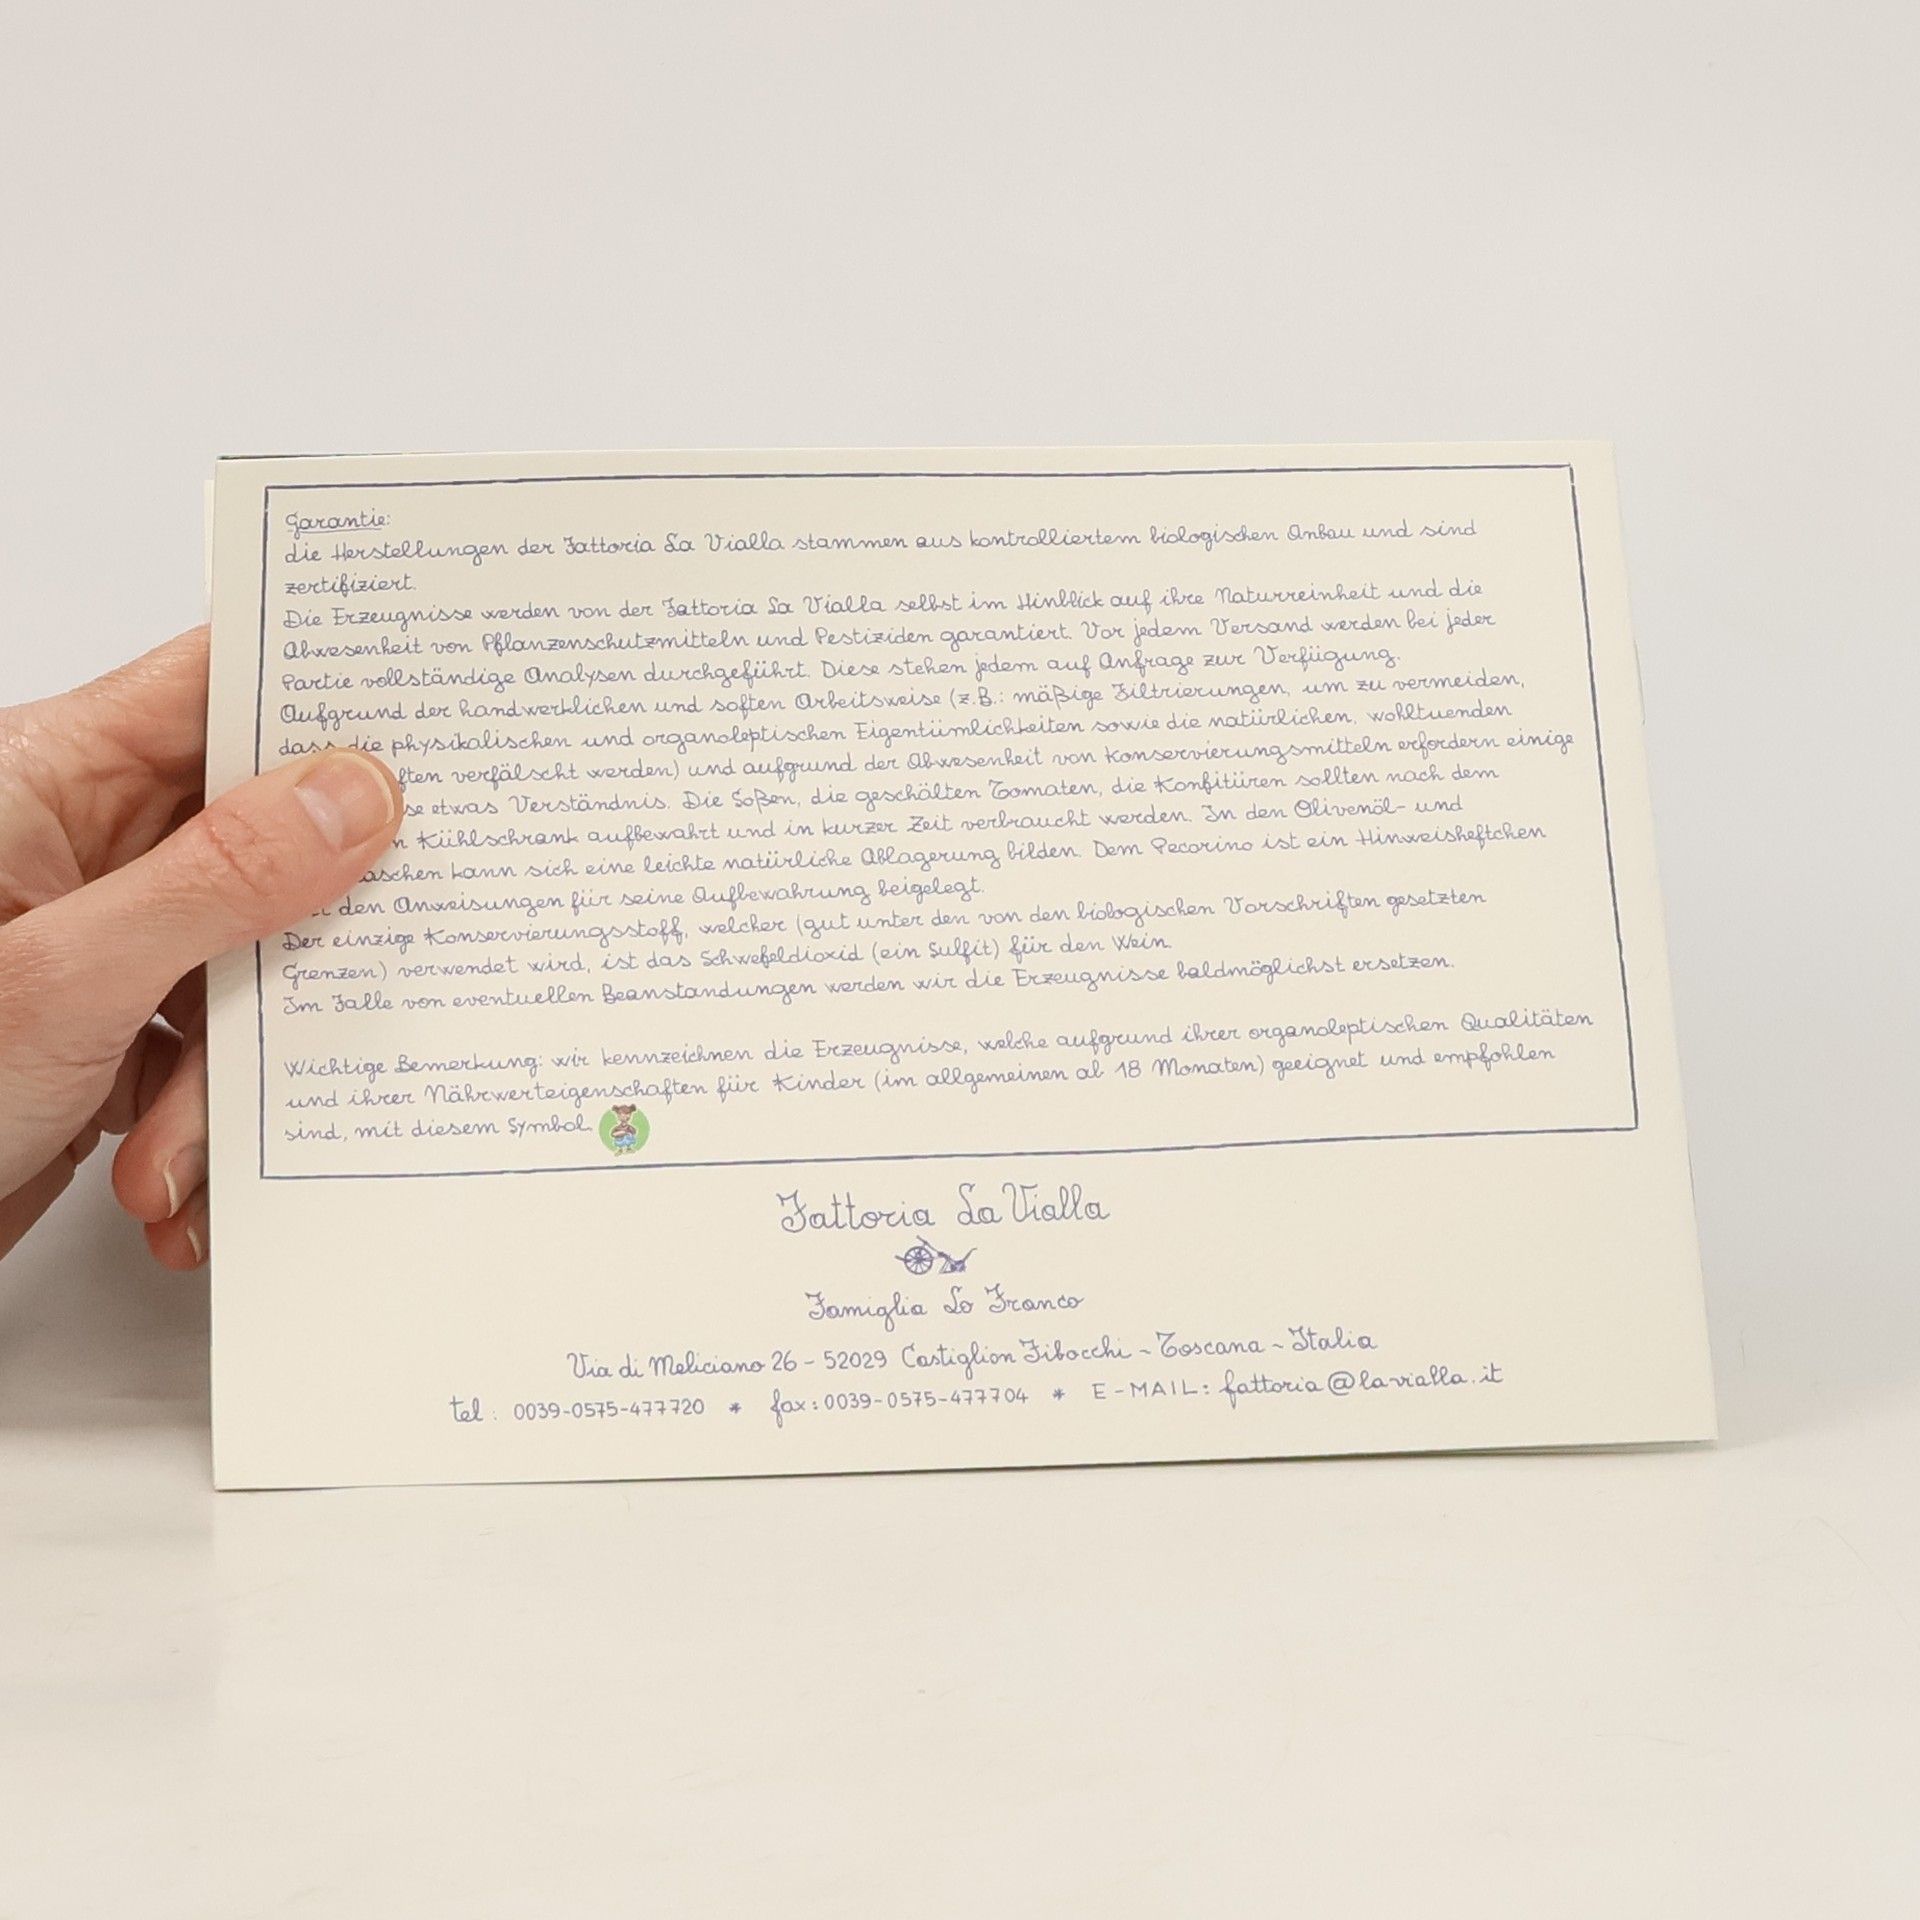 Garantie:
die Herstellungen der Fattoria La Vialla stammen aus kontrolliertem biologischen Anbau und sind
zertifiziert.
Die Erzeugnisse werden von der Fattoria La Vialla selbst im Hinblick auf ihre Naturreinheit und die
Abwesenheit von Pflanzenschutzmitteln und Pestiziden garantiert. Vor jedem Versand werden bei jeder
Partie vollständige Analysen durchgeführt. Diese stehen jedem auf Anfrage zur Verfügung.
Aufgrund der handwerklichen und soften Arbeitsweise (z.B.: mäßige Filtrierungen, um zu vermeiden,
dass die physikalischen und organoleptischen Eigentümlichkeiten sowie die natürlichen, wohltuenden
ften verfälscht werden) und aufgrund der Abwesenheit von Konservierungsmitteln erfordern einige
se etwas Verständnis. Die Soßen, die geschälten Tomaten, die Konfitüren sollten nach dem
n Kühlschrank aufbewahrt und in kurzer Zeit verbraucht werden. In den Olivenöl- und
aschen kann sich eine leichte natürliche Ablagerung bilden. Dem Pecorino ist ein Hinweisheftchen
den Anweisungen für seine Aufbewahrung beigelegt.
Der einzige Konservierungsstoff, welcher (gut unter den von den biologischen Vorschriften gesetzten
Grenzen) verwendet wird, ist das Schwefeldioxid (ein Sulfit) für den Wein.
Im Falle von eventuellen Beanstandungen werden wir die Erzeugnisse baldmöglichst ersetzen.
Wichtige Bemerkung: wir kennzeichnen die Erzeugnisse, welche aufgrund ihrer organoleptischen Qualitäten
und ihrer Nährwerteigenschaften für Kinder (im allgemeinen ab 18 Monaten) geeignet und empfohlen
sind, mit diesem Symbol.
Fattoria La Vialla
Famiglia Lo Franco
Via di Meliciano 26 - 52029 Castiglion Fibocchi ~ Toscana ~ Italia
tel: 0039-0575-477720 * fax: 0039-0575-477704 * E-MAIL: fattoria@lavialla.it